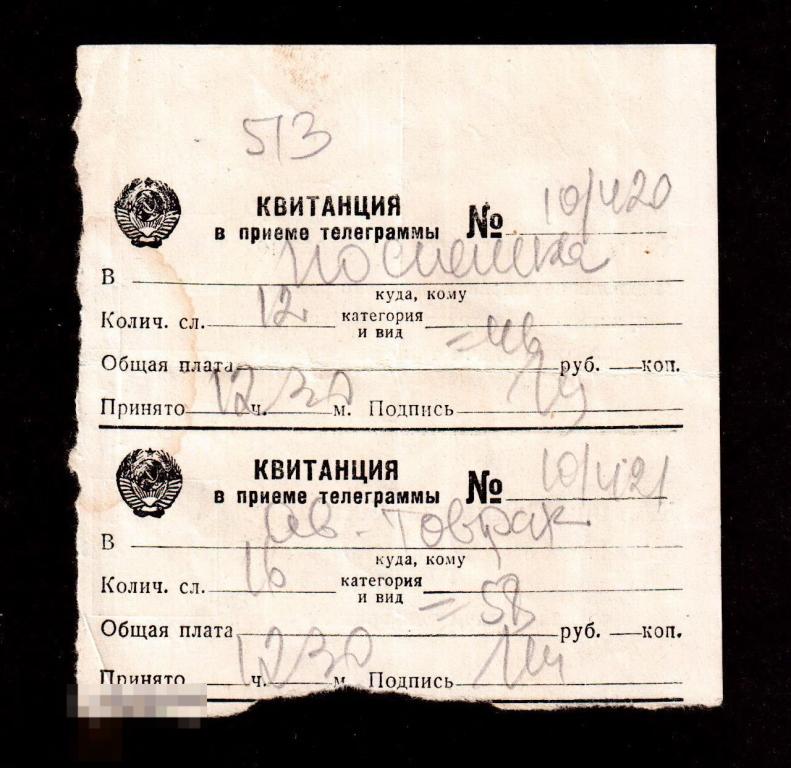 513
КВИТАНЦИЯ
в приеме телеграммы № 10/420
В Поспешиха
куда, кому
Колич. сл. 12 категория и вид
Общая плата =46 руб. коп.
Принято 12 ч. 30 м. Подпись
КВИТАНЦИЯ
в приеме телеграммы № 10/421
В
куда, кому
Колич. сл. 16 категория и вид
Общая плата =58 руб. коп.
Принято 12 ч. 30 м. Подпись